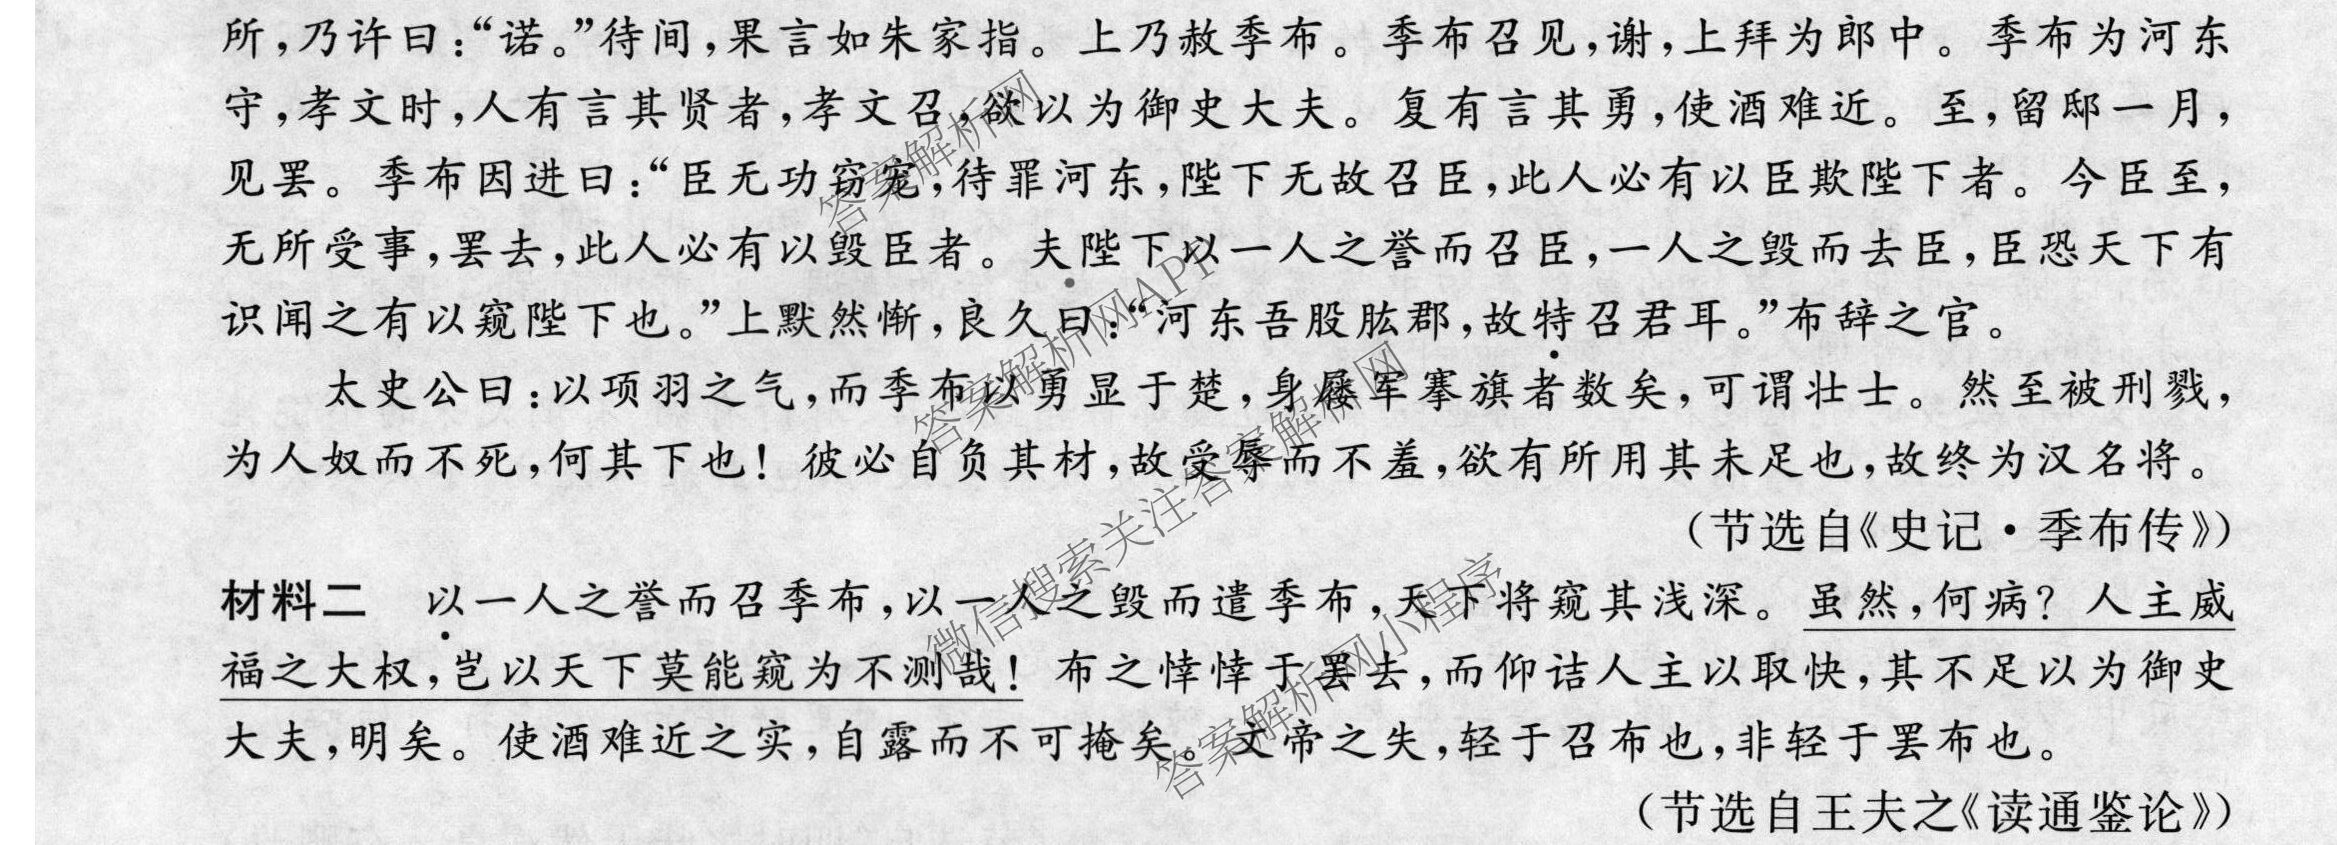 所,乃许曰:“诺。”待间,果言如朱家指。上乃赦季布。季布召见,谢,上拜为郎中。季布为河东
守,孝文时,人有言其贤者,孝文召,欲以为御史大夫。复有言其勇,使酒难近。至,留邸一月,
见罢。季布因进曰:“臣无功窃宠,待罪河东,陛下无故召臣,此人必有以臣欺陛下者。今臣至,
无所受事,罢去,此人必有以毁臣者。夫陛下以一人之誉而召臣,一人之毁而去臣,臣恐天下有
识闻之有以窥陛下也。”上默然惭,良久曰:“河东吾股肱郡,故特召君耳。”布辞之官。
太史公曰:以项羽之气,而季布以勇显于楚,身屦军搴旗者数矣,可谓壮士。然至被刑戮,
为人奴而不死,何其下也!彼必自负其材,故受辱而不羞,欲有所用其未足也,故终为汉名将。
(节选自《史记·季布传》)
材料二 以一人之誉而召季布,以一人之毁而遣季布,天下将窥其浅深。虽然,何病?人主威
福之大权,岂以天下莫能窥为不测哉!布之悻悻于罢去,而仰诘人主以取快,其不足以为御史
大夫,明矣。使酒难近之实,自露而不可掩矣。文帝之失,轻于召布也,非轻于罢布也。
(节选自王夫之《读通鉴论》)
答案解析网
答案解析网APP
微信搜索关注答案解析网
答案解析网小程序